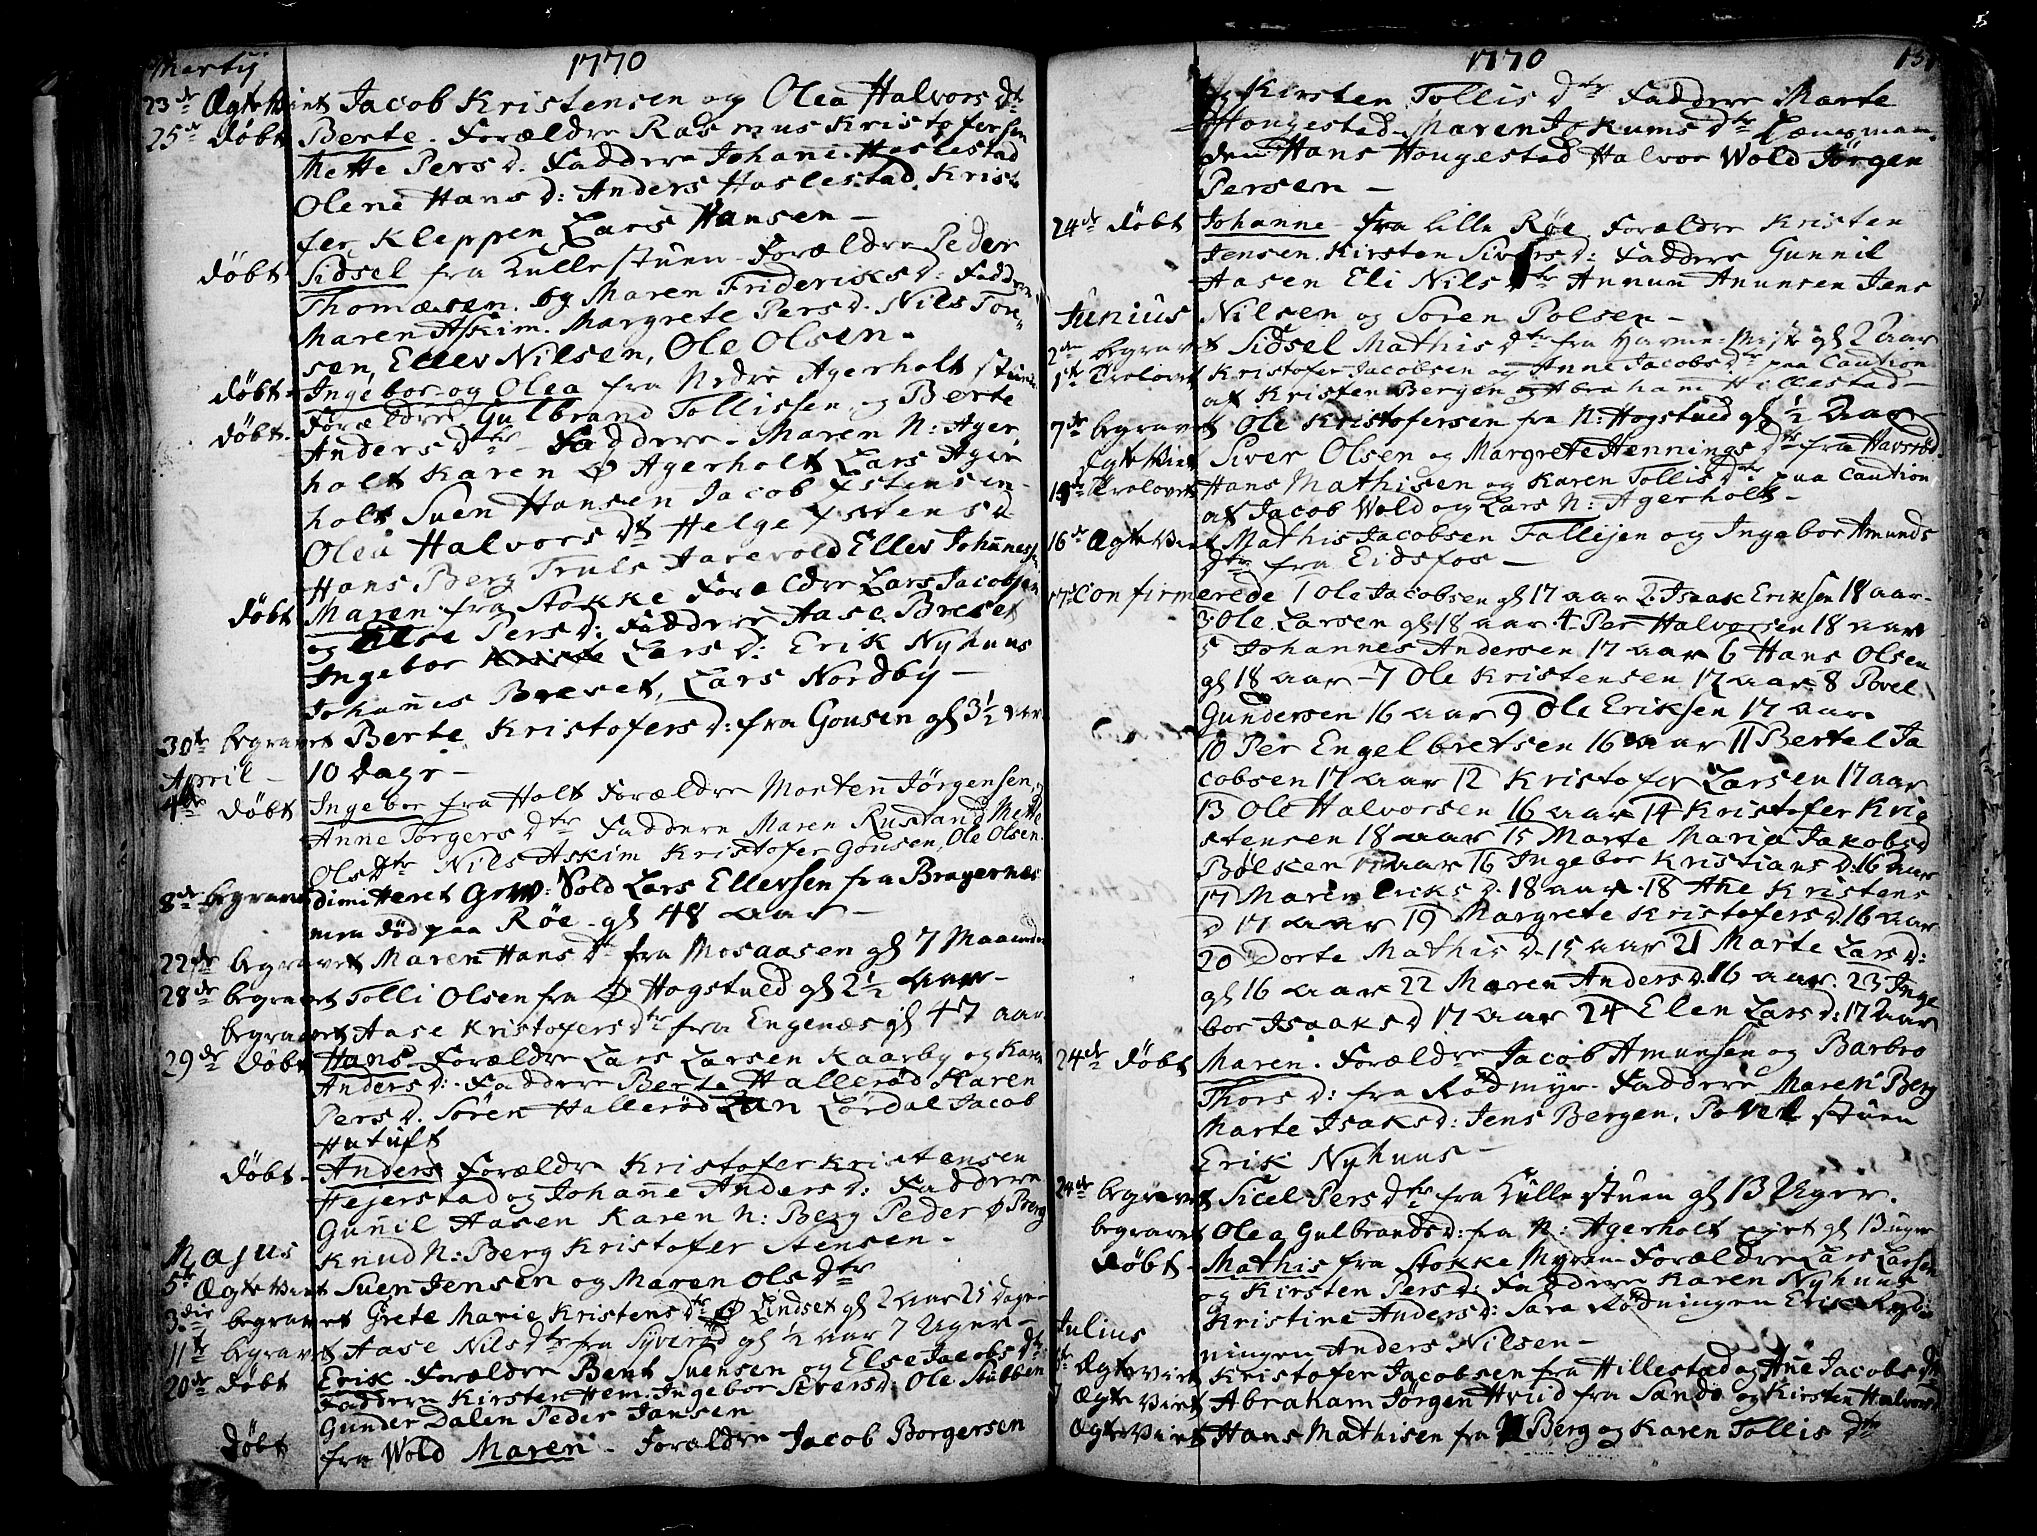 Martij
1770
23de Ægte Viet Jacob Kristensen og Olea Halvors Dtr
25de Døbt Berte. Forældre Rasmus Kristofersen
Mette Pers D. Faddere Johane Haslestad
Olene Hans D: Anders Haslestad Kris
fer Kleppen Lars Hansen —
Døbt Sidsel fra Kullestuen Forældre Peder
Thomæsen og Maren Frideriks D: Faddere
Maren Askim. Margrete Pers D. Nils Tor
sen, Ellev Nilsen, Ole Olsen.
Døbt Ingebor og Olea fra Nedre Agerholt stuen
Døbt. Forældre Gulbrand Tollissen og Berte
Anders Dtr — Faddere — Maren N: Ager
holt Karen Ø Agerholt Lars Ager
holt Suen Hansen Jacob Estensen
Olea Halvors Dt Helge Estens D
Hans Berg Truls Aarevold Ellev Johannes
Døbt Maren fra Stokke Forældre Lars Jacobsen
og Else Pers D: Faddere Aase Breset
Ingebor Lars D: Erik Nyhuus
Johanes Breset, Lars Nordby —
30te begravet Berte Kristofers D: fra Gousen gl 3½ aar
10 Dage —
April —
4de Døbt Ingebor fra Holt Forældre Morten Jørgensen,
Anne Torgers Dtr Faddere Maren Rustand Mette
Ols Dtr Nils Askim Kristofer Gousen, Ole Olsen
8de begravet dimitteret Gew: Sold Lars Ellevsen fra Bragernæs
men død paa Røe gl 48 aar —
22de begravet Maren Hans Dt fra Mosaasen gl 7 Maaneder
28de begravet Tolli Olsen fra Ø Hogstued gl 2½ aar —
begravet Aase Kristofers Dtr fra Engenæs gl 47 aar
29de Døbt Hans Forældre Lars Larsen Kaarby og Karen
Anders D: Faddere Berte Hallerød Karen
Pers D. Søren Hallerød Lørdal Jacob
Hatuft
Døbt — Anders Forældre Kristofer Kristensen
Hejerstad og Johane Anders D: Faddere
Gunil Aasen Karen N: Berg Peder Ø Berg
Knud N: Berg Kristofer Stensen —
Majus
5te Ægte Viet Suen Jensen og Maren Ols Dtr
3die begravet Grete Marie Kristens Dtr Ø Lindset gl 2 aar 21 Dage
11te begravet Aase Nils Dtr fra Syverød gl ½ aar 7 Uger —
20de Døbt Erik Forældre Bent Suensen og Else Jacobs Dt
Faddere Kirsten Hem. Ingebor Sivers D: Ole Stubben
Gunder Dalen Peder Jansen
Døbt fra Wold Maren — Forældre Jacob Borgersen
1770
og Kirsten Tollis Dtr Faddere Marte
Hougestad Maren Jokums Dtr Lænsman
den Hans Hougestad Halvor Wold Jørgen
Persen —
24de Døbt Johanne fra lille Røe. Forældre Kristen
Jensen Kirsten Sivers D: Faddere Gunnil
Aasen Eli Nils Dtr Annun Anunsen Jens
Nilsen og Soren Polsen —
Junius
2den begravet Sidsel Mathis Dtr fra gl 2 aar
1te Trolovet Kristofer Jacobsen og Anne Jacobs Dtr paa Caution
af Kristen Bergen og Abraham Hillestad —
7de begravet Ole Kristofersen fra N: Hogstued gl ½ Aar
Ægte Viet Siver Olsen og Margrete Hennings Dtr fra Havsrød
Trolovet Hans Mathisen og Karen Tollis Dtr paa Caution
af Jacob Wold og Lars N: Agerholt —
16de Ægte Viet Mathis Jacobsen Follejen og Ingebor Amunds
Dtr fra Eidsfos —
17de Confirmerede 1 Ole Jacobsen gl 17 aar 2. Isaak Eriksen 18 aar
3 Ole Larsen gl 18 aar 4 Per Halvorsen 18 aar
5 Johannes Andersen 17 aar 6 Hans Olsen
gl 18 aar — 7 Ole Kristensen 17 aar 8 Povel
Gundersen 16 aar 9 Ole Eriksen 17 aar
10 Per Engelbretsen 16 aar 11 Bertel Ja
cobsen 17 aar 12 Kristofer Larsen 17 aar
13 Ole Halvorsen 16 aar 14 Kristofer Kris
stensen 18 aar 15 Marte Maria Jakobs D
Bølsker 17 aar 16 Ingebor Kristians D. 16 aar
17 Maren Eriks D. 18 aar 18 Ane Kristens
D 17 aar 19 Margrete Kristofers D. 16 aar
20 Dorte Mathis D. 15 aar 21 Marte Lars D:
gl 16 aar 22 Maren Anders D. 16 aar. 23 Inge
bor Isaaks D 17 aar 24 Elen Lars D: 17 aar
24de Døbt Maren. Forældre Jacob Amunsen og Barbro
Thors D: fra Rødmyr. Faddere Maren Berg
Marte Isaks D: Jens Bergen, Povel Stuen
Erik Nyhuus —
24de begravet Sicel Pers Dtr fra Kulle stuen gl 13 Uger.
begravet Olea Gulbrands D: fra N: Agerholt gl 13 uger
Døbt — Mathis fra Stokke Myren Forældre Lars Larsen
og Kirsten Pers D: Faddere Karen Nyhuus
Kristine Anders D: Sara Rødningen Erik Rød
ningen Anders Nilsen —
Julius
Ægte Viet Kristofer Jacobsen fra Hillestad og Ane Jacobs Dtr
Ægte Viet Abraham Jørgen Hviid fra Sande og Kirsten Halvors D
Ægte Viet Hans Mathisen fra Berg og Karen Tollis Dtr